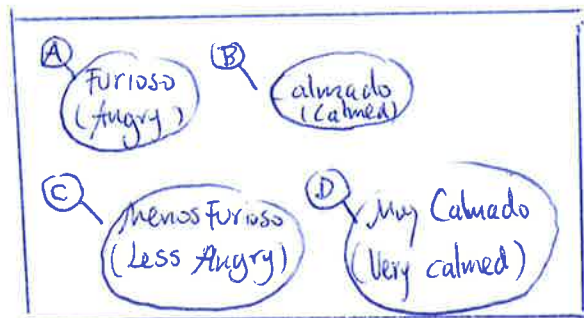 A
Furioso
(Angry)
B
Calmado
(Calmed)
C
Menos Furioso
(Less Angry)
D
Muy Calmado
(Very calmed)